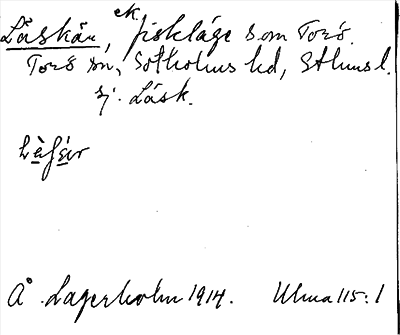 Låskär, ek. fiskläge som Torö.
Torö sn, Sotholms hd, Sthms l.
sj. Låsk.
Å. Lagerholm 1914. Ulma 115:1